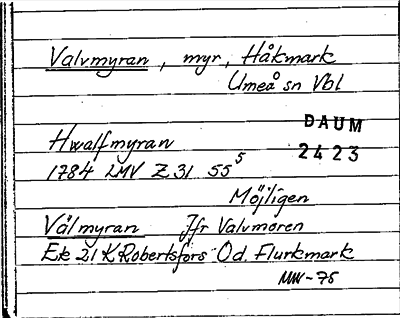 Valvmyran, myr, Håkmark
Umeå sn Vbl
DAUM
2423
Hwalfmyran
1784 LMV Z 31 55⁵
Möjligen
Vålmyran Jfr Valvmoren
Ek 21 K Robertsfors Od. Flurkmark
MW-75